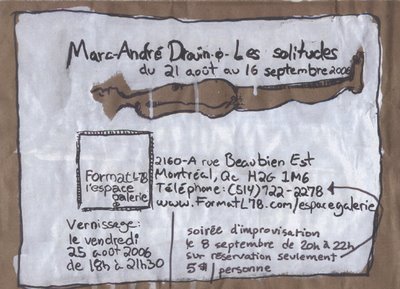 Marc-André Drouin · Les solitudes
du 21 août au 16 septembre 2006
Format L78
l'espace
galerie
2160-A rue Beaubien Est
Montréal, Qc H2G 1M6
Téléphone: (514) 722-2278
www.FormatL78.com/espacegalerie
Vernissage:
le vendredi
25 août 2006
de 18h à 21h30
soirée d'improvisation
le 8 septembre de 20h à 22h
sur réservation seulement
5$ personne